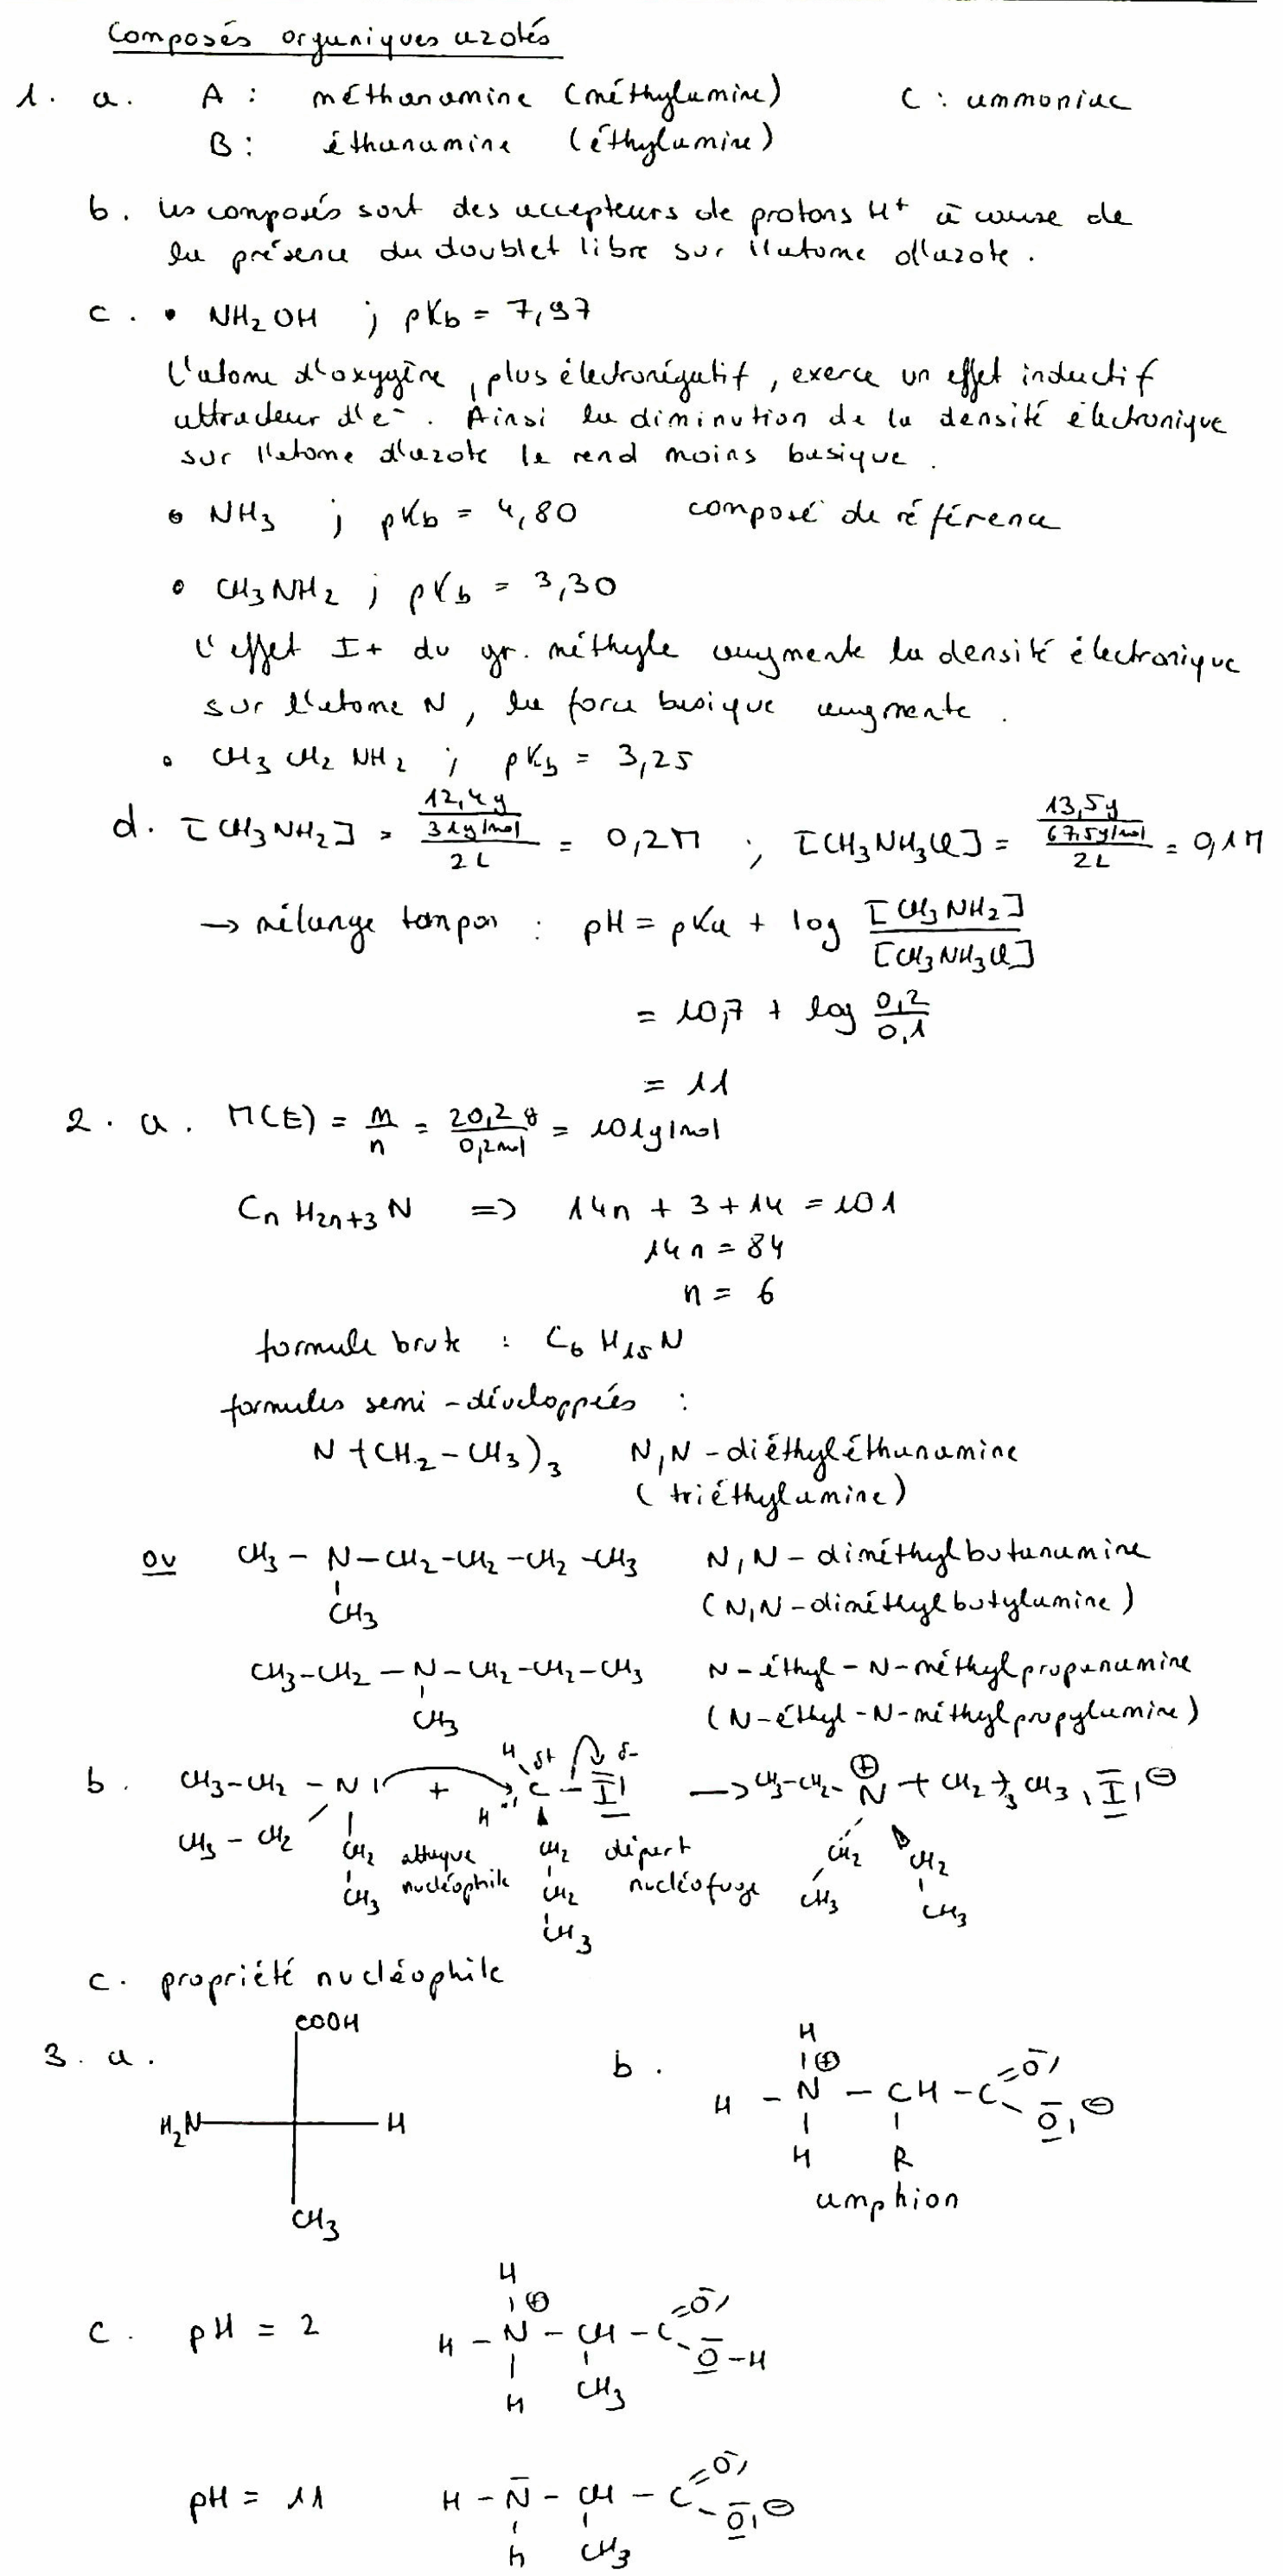 Composés organiques azotés
1. a. A : méthanamine (méthylamine) C : ammoniac
B : éthanamine (éthylamine)
b. les composés sont des accepteurs de protons H⁺ à cause de
la présence du doublet libre sur l'atome d'azote.
c. • NH₂OH ; pKb = 7,97
L'atome d'oxygène, plus électronégatif, exerce un effet inductif
attracteur d'e⁻. Ainsi la diminution de la densité électronique
sur l'atome d'azote le rend moins basique.
• NH₃ ; pKb = 4,80 composé de référence
• CH₃NH₂ ; pKb = 3,30
L'effet I+ du gr. méthyle augmente la densité électronique
sur l'atome N, la force basique augmente.
• CH₃CH₂NH₂ ; pKb = 3,25
d. [CH₃NH₂] = (12,4g / 31g/mol) / 2L = 0,2M ; [CH₃NH₃Cl] = (13,5g / 67,5g/mol) / 2L = 0,1M
→ mélange tampon : pH = pKa + log [CH₃NH₂] / [CH₃NH₃Cl]
= 10,7 + log 0,2 / 0,1
= 11
2. a. M(E) = m/n = 20,2g / 0,2mol = 101g/mol
CₙH₂ₙ₊₃N => 14n + 3 + 14 = 101
14n = 84
n = 6
formule brute : C₆H₁₅N
formules semi-développées :
N-(CH₂-CH₃)₃ N,N-diéthyléthanamine
(triéthylamine)
ou CH₃ - N - CH₂-CH₂-CH₂-CH₃ N,N-diméthylbutanamine
CH₃ (N,N-diméthylbutylamine)
CH₃-CH₂ - N - CH₂-CH₂-CH₃ N-éthyl-N-méthylpropanamine
CH₃ (N-éthyl-N-méthylpropylamine)
b. CH₃-CH₂ - N| + H H δ+ C - I| δ- → CH₃-CH₂-N⊕-(CH₂)₃CH₃, |I|⊖
CH₃-CH₂ CH₂ attaque CH₂ départ CH₂ CH₂
CH₃ nucléophile CH₂ nucléofuge CH₃ CH₃
CH₃
c. propriété nucléophile
3. a. COOH
H₂N H
CH₃
b. H
H - N⊕ - CH - C = O
O⊖
H R
amphion
c. pH = 2
H
H - N⊕ - CH - C = O
O - H
H CH₃
pH = 11 H - N - CH - C = O
O⊖
h CH₃